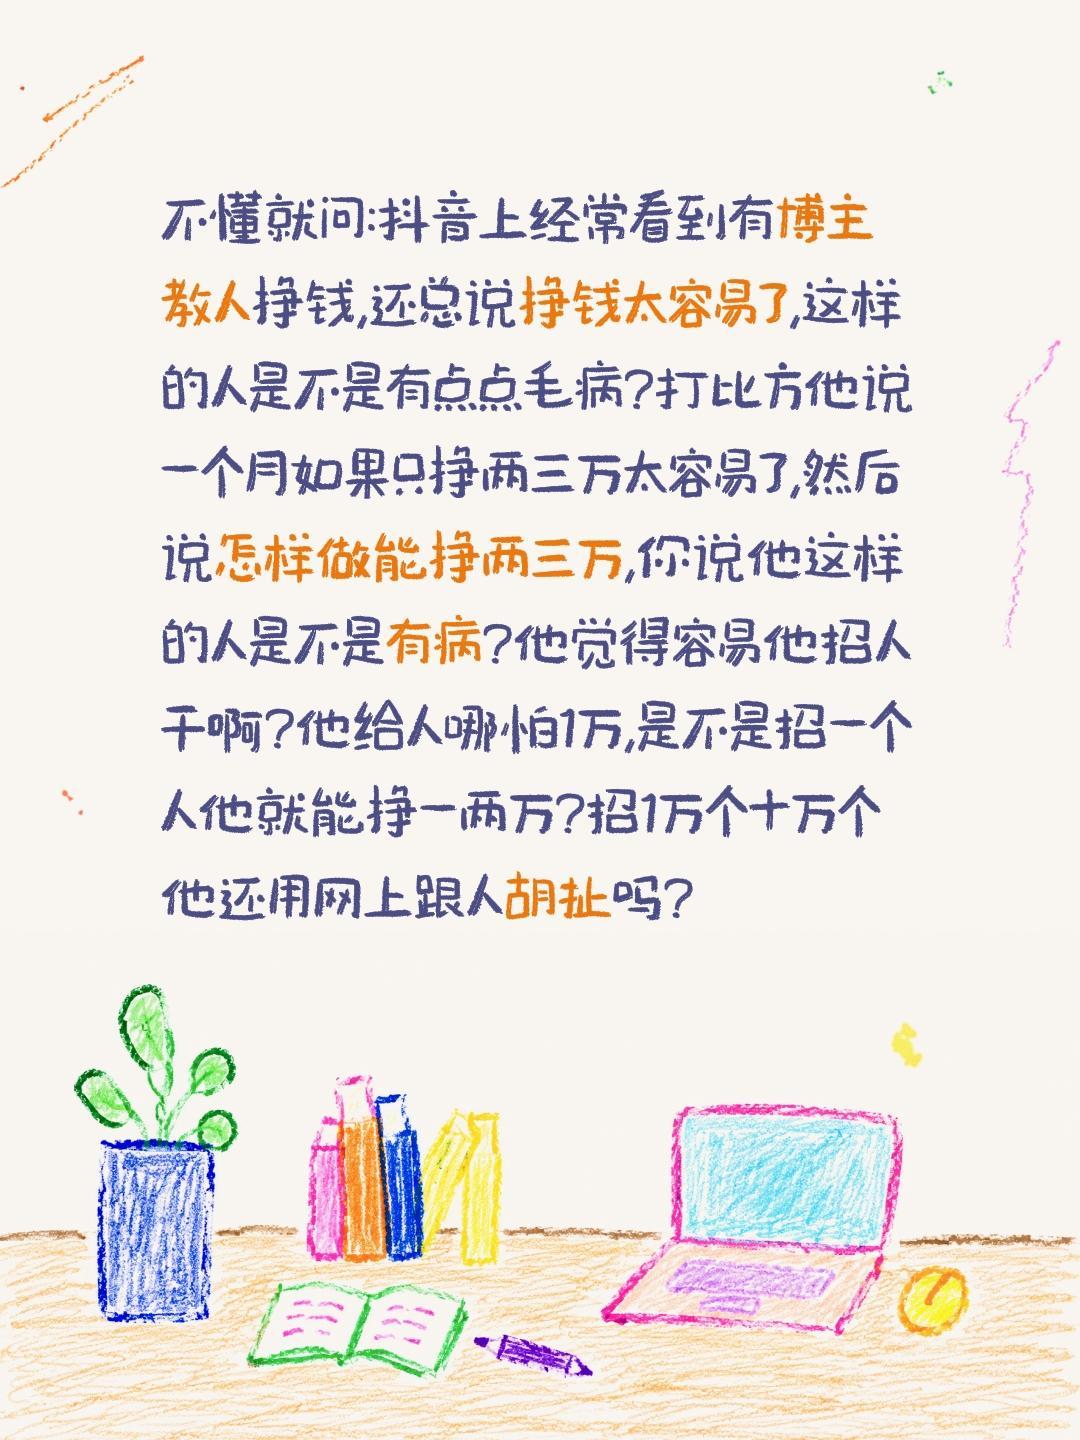 不懂就问:抖音上经常看到有博主
教人挣钱,还总说挣钱太容易了,这样
的人是不是有点点毛病?打比方他说
一个月如果只挣两三万太容易了,然后
说怎样做能挣两三万,你说他这样
的人是不是有病?他觉得容易他招人
干啊?他给人哪怕1万,是不是招一个
人他就能挣一两万?招1万个十万个
他还用网上跟人胡扯吗?